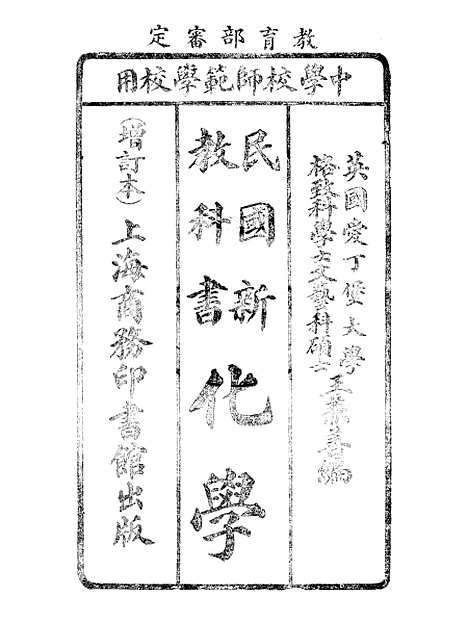 教育部審定
中學校師範學校用
英國愛丁堡大學
格致科學士文藝科碩士王兼善編
民國新
教科書
化學
(增訂本)上海商務印書館出版